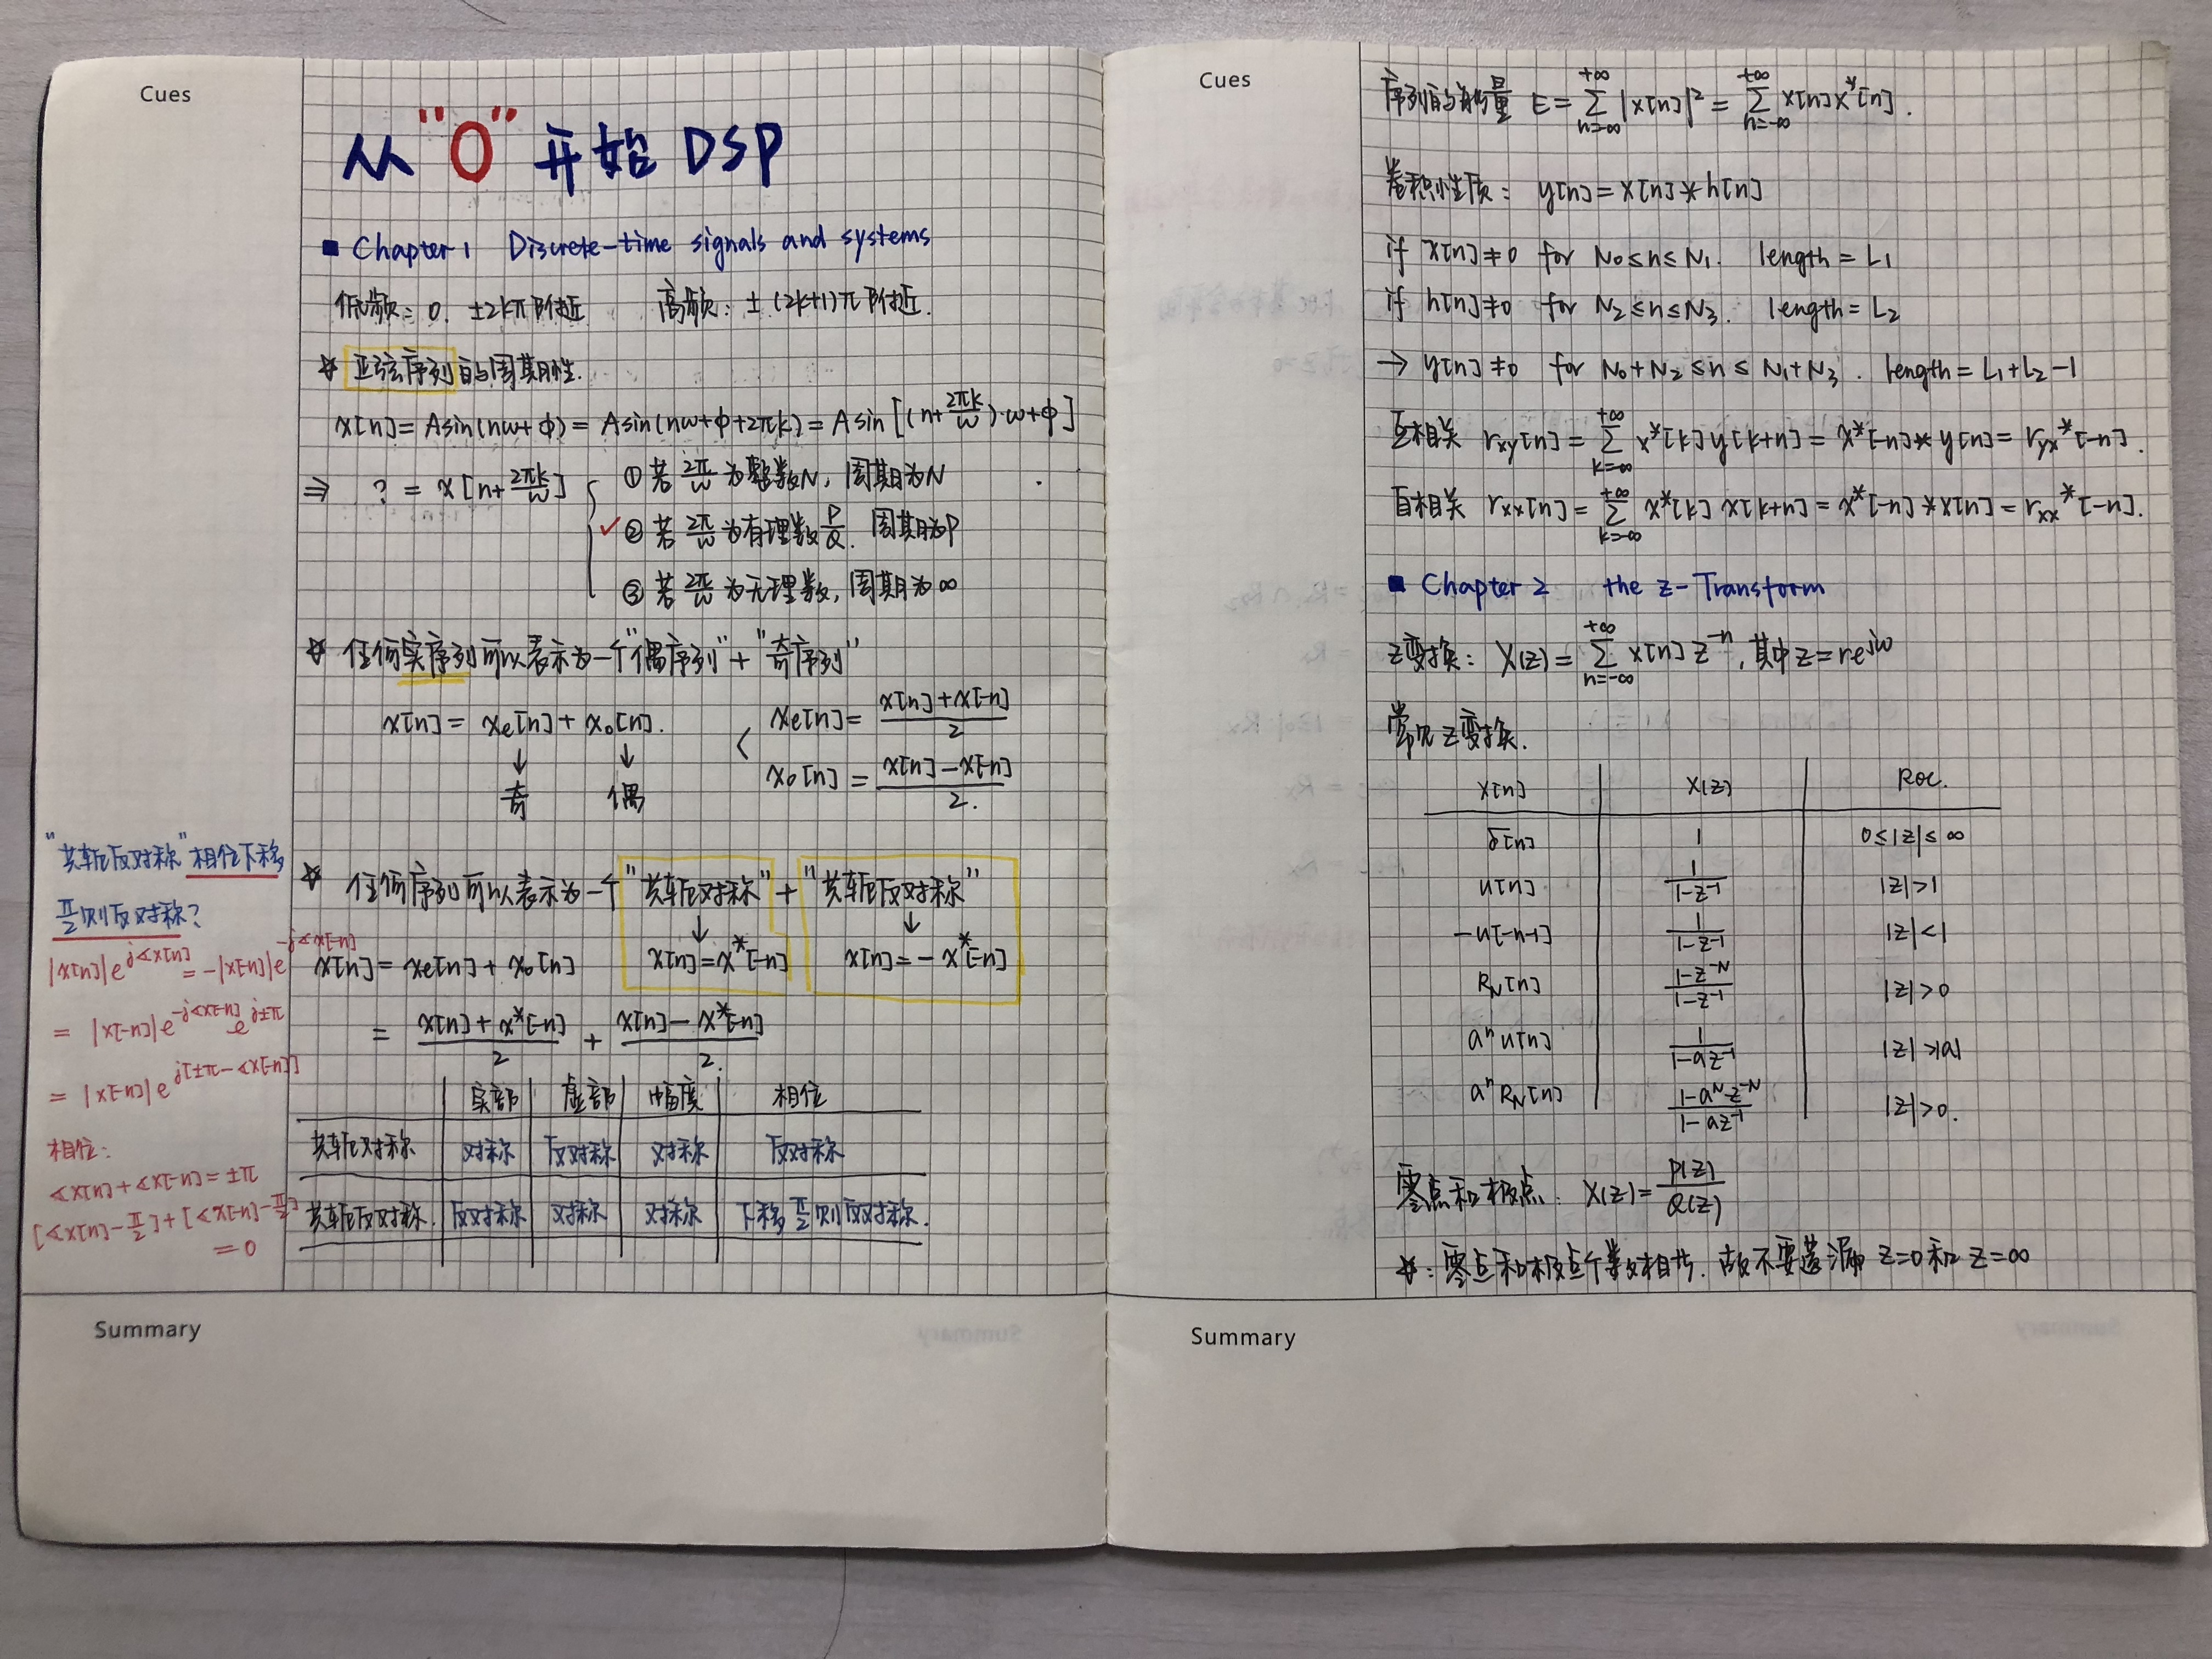 Cues
从"0"开始DSP
■ Chapter 1 Discrete-time signals and systems
低频: 0. ±2kπ附近 高频: ±(2k+1)π附近.
☆ 正弦序列的周期性.
x[n] = Asin(nω+φ) = Asin(nω+φ+2πk) = Asin[(n+2πk/ω)·ω+φ]
⇒ ? = x[n+2πk/ω]
① 若 2π/ω 为整数N, 周期为N
✓② 若 2π/ω 为有理数 P/Q. 周期为P
③ 若 2π/ω 为无理数, 周期为∞
☆ 任何实序列可以表示为一个"偶序列"+"奇序列"
x[n] = xe[n] + xo[n].
↓ ↓
奇 偶
xe[n] = (x[n]+x[-n])/2
xo[n] = (x[n]-x[-n])/2.
☆ 任何序列可以表示为一个"共轭对称"+"共轭反对称"
↓ ↓
x[n] = xe[n] + xo[n] x[n]=x*[-n] x[n]=-x*[-n]
= (x[n]+x*[-n])/2 + (x[n]-x*[-n])/2.
实部 虚部 幅度 相位
共轭对称 对称 反对称 对称 反对称
共轭反对称. 反对称 对称 对称 下移π/2则反对称.
"共轭反对称"相位下移
π/2则反对称?
|x[n]|e^{j∢x[n]} = -|x[-n]|e^{-j∢x[-n]}
= |x[-n]|e^{-j∢x[-n]} e^{j±π}
= |x[-n]|e^{j[±π-∢x[-n]]}
相位:
∢x[n]+∢x[-n]=±π
[∢x[n]-π/2]+[∢x[-n]-π/2]
=0
Summary
Cues
序列的能量 E = Σ_{n=-∞}^{+∞} |x[n]|² = Σ_{n=-∞}^{+∞} x[n]x*[n].
卷积性质: y[n] = x[n]*h[n]
if x[n]≠0 for N₀≤n≤N₁. length = L₁
if h[n]≠0 for N₂≤n≤N₃. length = L₂
→ y[n]≠0 for N₀+N₂≤n≤N₁+N₃. length = L₁+L₂-1
互相关 rxy[n] = Σ_{k=-∞}^{+∞} x*[k]y[k+n] = x*[-n]*y[n] = ryx*[-n].
自相关 rxx[n] = Σ_{k=-∞}^{+∞} x*[k]x[k+n] = x*[-n]*x[n] = rxx*[-n].
■ Chapter 2 the z-Transform
z变换: X(z) = Σ_{n=-∞}^{+∞} x[n]z^{-n}, 其中z=re^{jω}
常见z变换.
x[n] X(z) ROC.
δ[n] 1 0≤|z|≤∞
u[n] 1/(1-z⁻¹) |z|>1
-u[-n-1] 1/(1-z⁻¹) |z|<1
R_N[n] (1-z^{-N})/(1-z⁻¹) |z|>0
aⁿu[n] 1/(1-az⁻¹) |z|>|a|
aⁿR_N[n] (1-a^N z^{-N})/(1-az⁻¹) |z|>0.
零点和极点: X(z) = P(z)/Q(z)
☆: 零点和极点个数相等. 故不要遗漏 z=0和z=∞
Summary